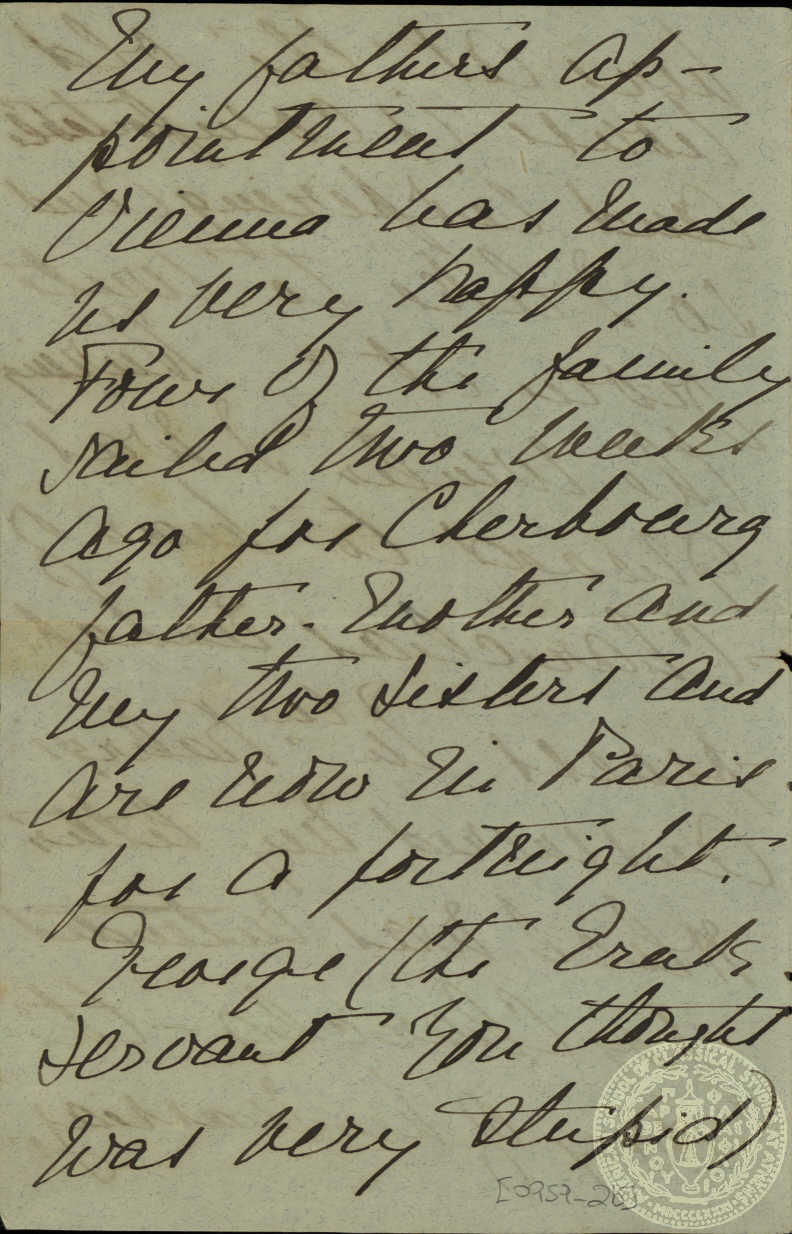 My fathers ap-
pointment to
Vienna has made
us very happy.
Four of the family
sailed two weeks
ago for Cherbourg
father. Mother and
my two sisters and
are now in Paris.
for a fortnight.
George (the Greek
servant you thought
was very stupid)
[0959-20]